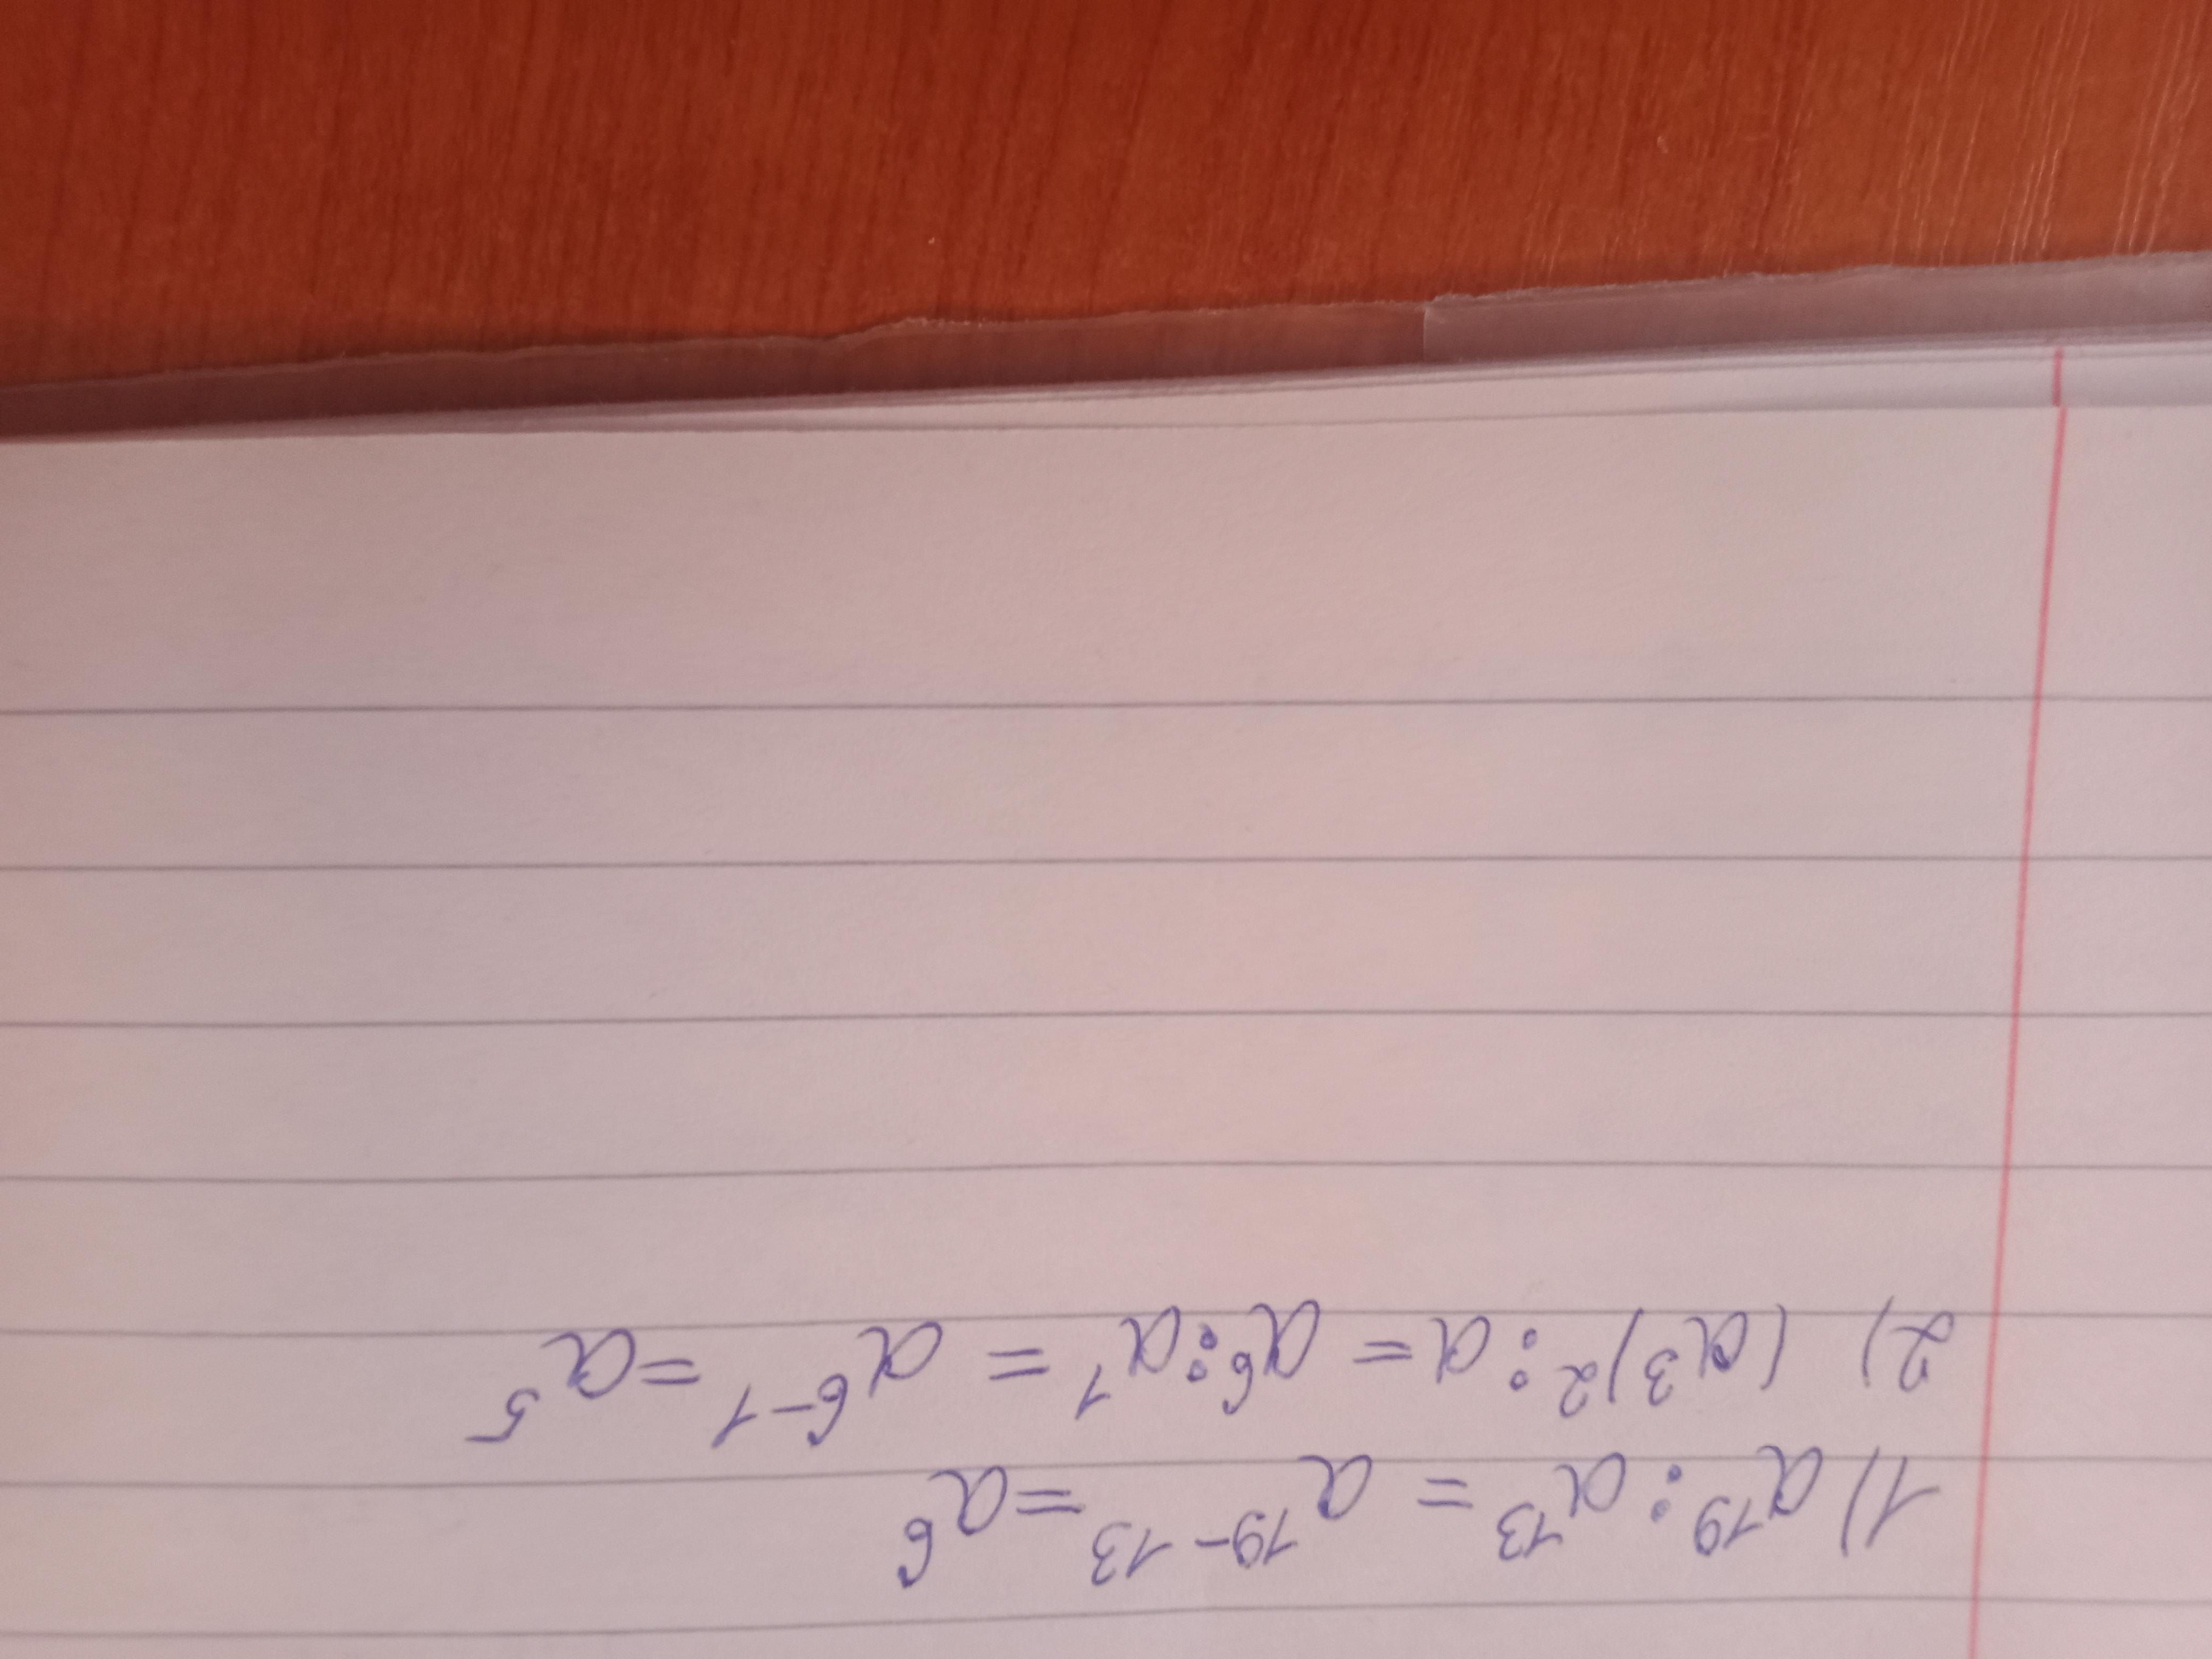 1) a¹⁹ : a¹³ = a¹⁹⁻¹³ = a⁶
2) (a³)² : a = a⁶ : a¹ = a⁶⁻¹ = a⁵